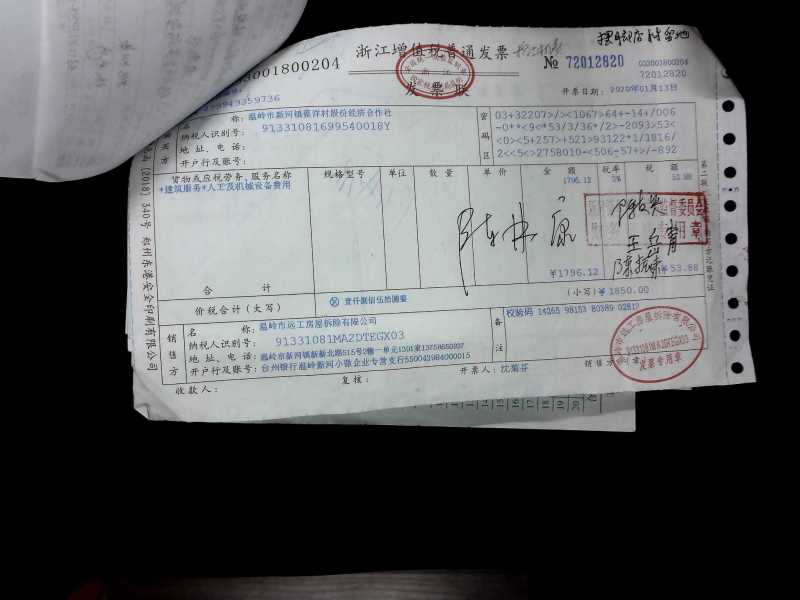 033001800204
浙江增值税普通发票
发票联
全国统一发票监制章
浙江
№ 72012820
033001800204
72012820
开票日期：2020年01月13日
79943359736
称：温岭市新河镇蔡洋村股份经济合作社
纳税人识别号：91331081699540018Y
地址、电话：
开户行及账号：
密码区
03+32207>/><1067>64+-14+/006
-0**<9<*53/3/36*/2>-2093>53<
<0><5+257>+521>93122*1/1816/
2<<5<>2758010-<506-57+>/-892
货物或应税劳务、服务名称 规格型号 单位 数量 单价 金额 税率 税额
*建筑服务*人工及机械设备费用 1796.12 3% 53.88
合计 ¥1796.12 ¥53.88
价税合计（大写） ⊗ 壹仟捌佰伍拾圆整 （小写）¥1850.00
销售方
名称：温岭市远工房屋拆除有限公司
纳税人识别号：91331081MAZDTEGX03
地址、电话：温岭市新河镇新新北路515号2幢一单元1301室13758650937
开户行及账号：台州银行温岭新河小微企业专营支行550043984000015
备注
校验码 14265 98153 80389 02819
收款人：
复核：
开票人：沈菊芬
销售方：章
温岭市远工房屋拆除有限公司
91331081MAZDTEGX03
发票专用章
监督委员会
专用章
〔2018〕340号 郑州东港安全印刷有限公司